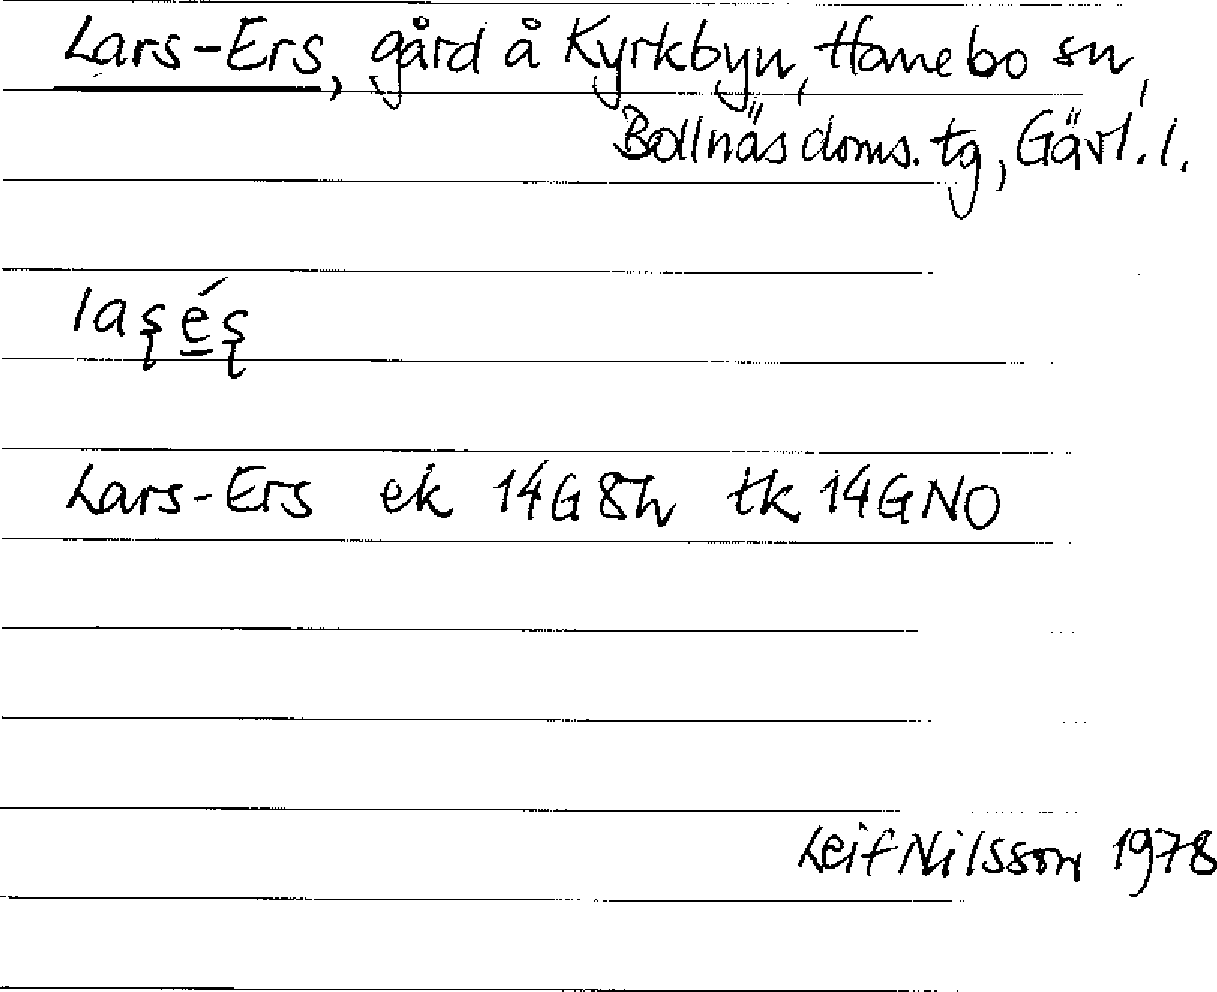 Lars-Ers, gård å Kyrkbyn, Hanebo sn,
Bollnäs doms. tg, Gävl. l.
laʂ é̲ʂ
Lars-Ers ek 14G8h tk 14GNO
Leif Nilsson 1978